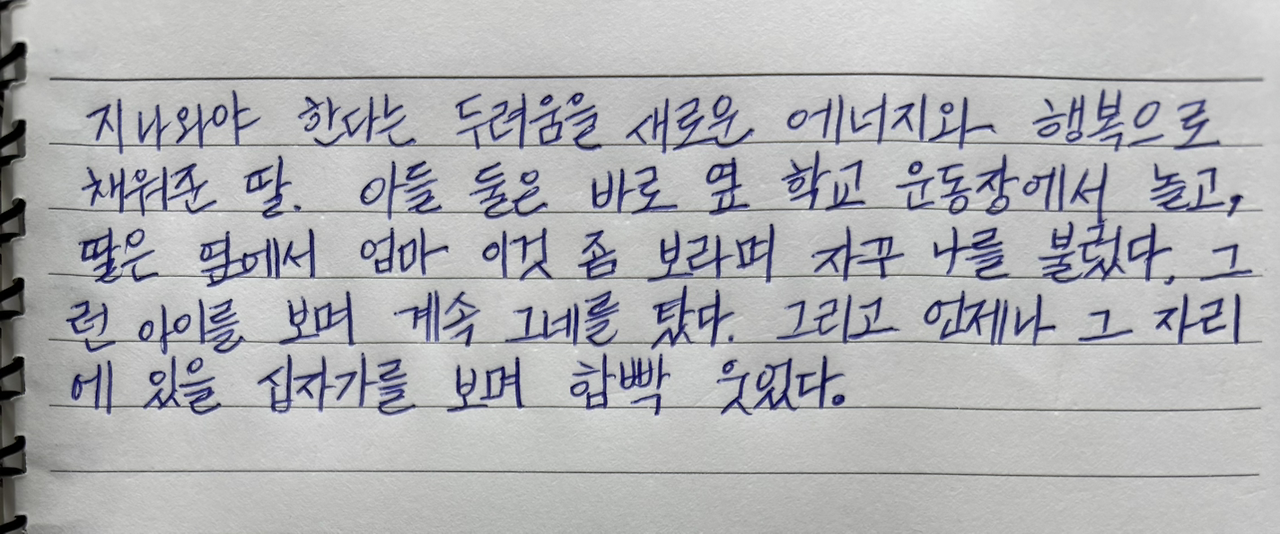 지나와야 한다는 두려움을 새로운 에너지와 행복으로
채워준 딸. 아들 둘은 바로 옆 학교 운동장에서 놀고,
딸은 옆에서 엄마 이것 좀 보라며 자꾸 나를 불렀다. 그
런 아이를 보며 계속 그네를 탔다. 그리고 언제나 그 자리
에 있을 십자가를 보며 함빡 웃었다.